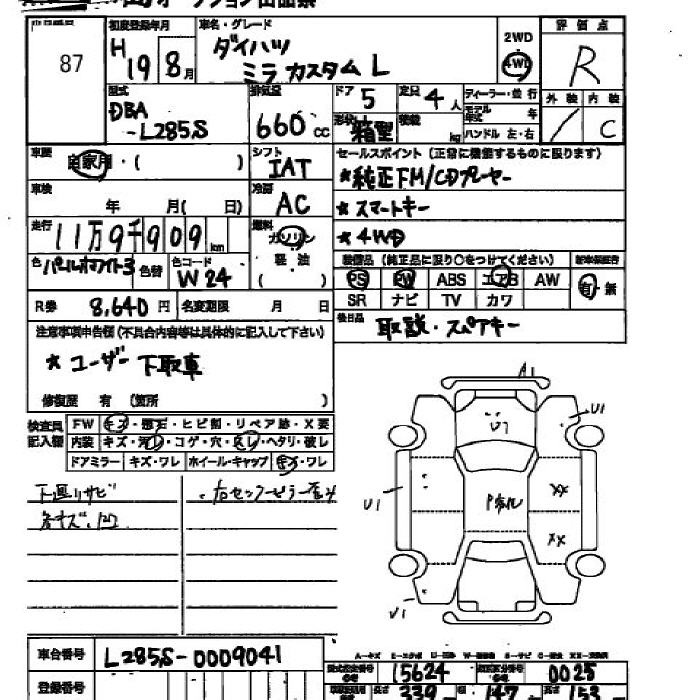 87
初度登録年月 車名・グレード 評価点
H 19 8月 ダイハツ 2WD
ミラ カスタム L 4WD R
型式 排気量 ドア 5 定員 4人 ディーラー・並行 外装 内装
DBA
-L285S 660cc 形状 箱型 装備 kg モデル年式 年 ハンドル 左・右 / C
車歴 自家用・( ) シフト IAT セールスポイント (正常に機能するものに限ります)
*純正FM/CDプレーヤー
車検 年 月( 日) 冷房 AC *スマートキー
走行 11万9千909km 燃料 ガソリン 軽油 ( ) *4WD
色 パールホワイト3 色替 色コード W24 装備品 (純正品に限り○をつけてください)
PS PW ABS エアB AW 有・無
SR ナビ TV カワ
R券 8,640円 名変期限 月 日
後日品 取説・スペアキー
注意事項申告欄(不具合内容等は具体的に記入して下さい)
*ユーザー下取車
修復歴 有 (箇所 )
検査員記入欄 FW キズ・飛石・ヒビ割・リペア跡・X要
内装 キズ・汚レ・コゲ・穴・スレ・ヘタリ・破レ
ドアミラー キズ・ワレ ホイール・キャップ キズ・ワレ
下回リサビ
A1
U1
U7
U1
Pパネル
XX
XX
U1
車台番号 L285S-0009041
登録番号
型式指定番号 15624 類別区分番号 0025
長さ 339 幅 147 高さ 153